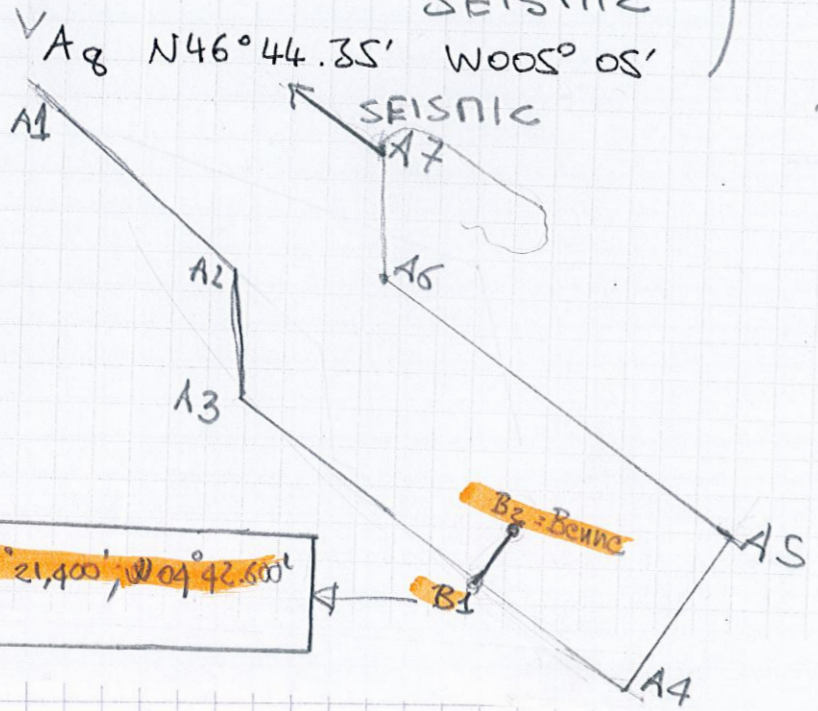 SEISMIC
A8 N46°44.35' W005° 05'
SEISMIC
A1
A7
A2
A6
A3
B2 = Benne
A5
°21,400'; W04°42.600'
B1
A4